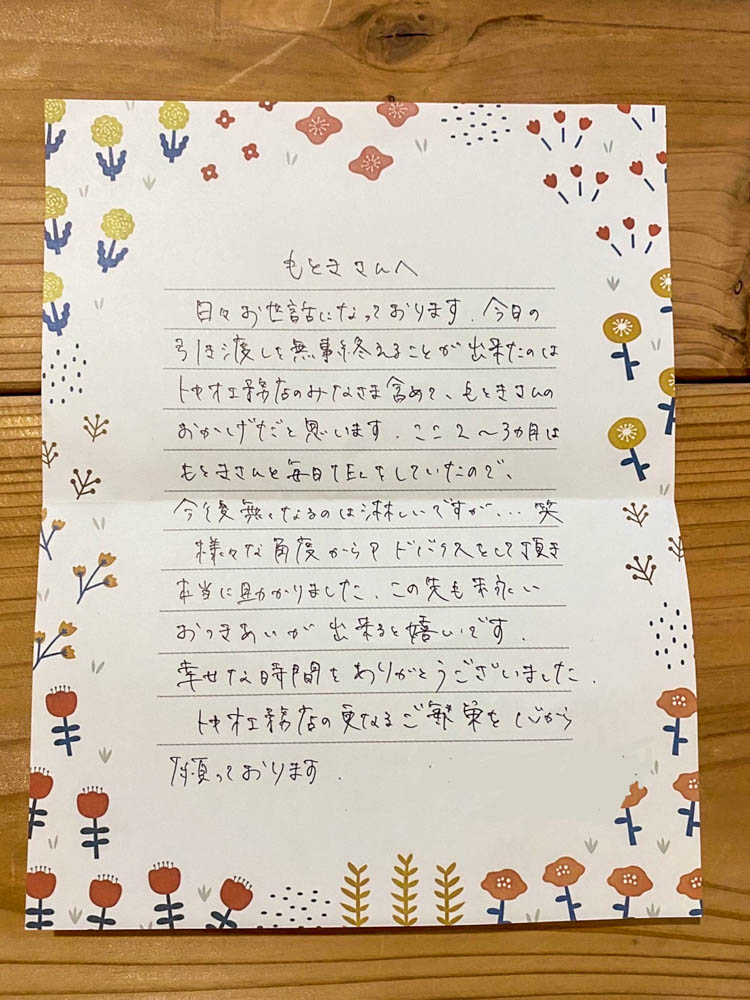 もときさんへ
日々お世話になっております。今日の
引き渡しを無事終えることが出来たのは
トヤオ工務店のみなさま含めて、もときさんの
おかげだと思います。ここ2〜3ヵ月は
もときさんと毎日TELをしていたので、
今後無くなるのは淋しいですが...笑
様々な角度からアドバイスをして頂き
本当に助かりました。この先も末永い
おつきあいが出来ると嬉しいです。
幸せな時間をありがとうございました。
トヤオ工務店の更なるご繁栄を心から
願っております。